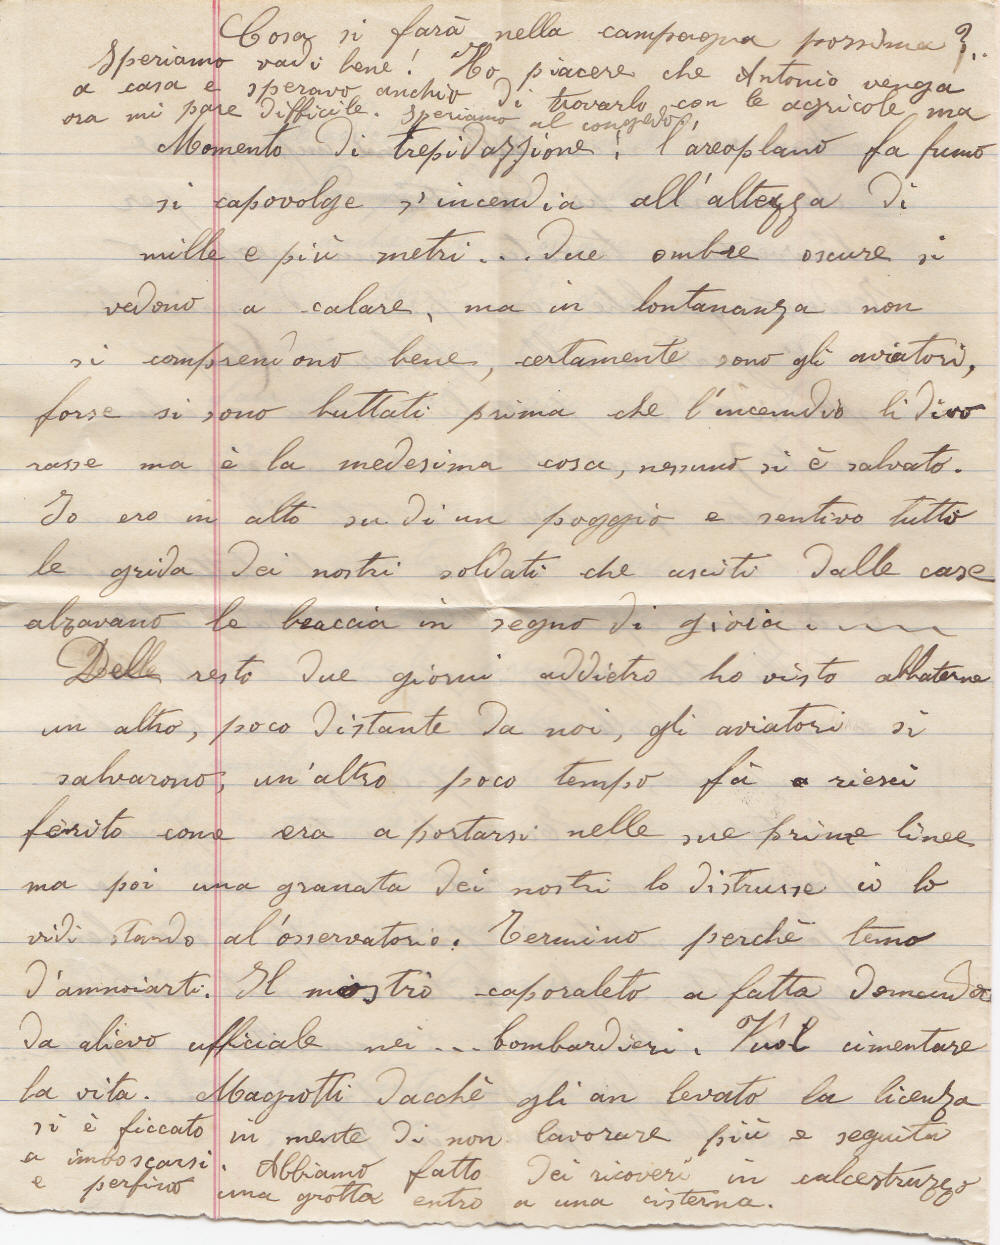 Cosa si farà nella campagna possima?..
Speriamo vadi bene! Ho piacere che Antonio venga
a casa e speravo anchio di trovarlo con le agricole ma
ora mi pare difficile. Speriamo al congedo!
Momento di trepidazzione! l'areoplano fa fumo
si capovolge s'incendia all'altezza di
mille e più metri... due ombre oscure si
vedono a calare, ma in lontananza non
si comprendono bene, certamente sono gli aviatori,
forse si sono buttati prima che l'incendio li divo
rasse ma è la medesima cosa, nessuno si è salvato.
Io ero in alto su di un poggio e sentivo tutto
le grida dei nostri soldati che usciti dalle case
alzavano le braccia in segno di gioia.
Delle resto due giorni addietro ho visto abbaterne
un altro, poco distante da noi, gli aviatori si
salvarono, un'altro poco tempo fà riescì
ferito come era a portarsi nelle sue prime linee
ma poi una granata dei nostri lo distrusse io lo
vidi stando al'osservatorio. Termino perchè temo
d'annoiarti. Il nostro caporaleto a fatta domanda
da alievo ufficiale nei... bombardieri. Vuol cimentare
la vita. Magrotti dacchè gli an levato la licenza
si è ficcato in mente di non lavorare più e seguita
a imboscarsi. Abbiamo fatto dei ricoveri in calcestruzzo
e perfino una grotta entro a una cisterna.